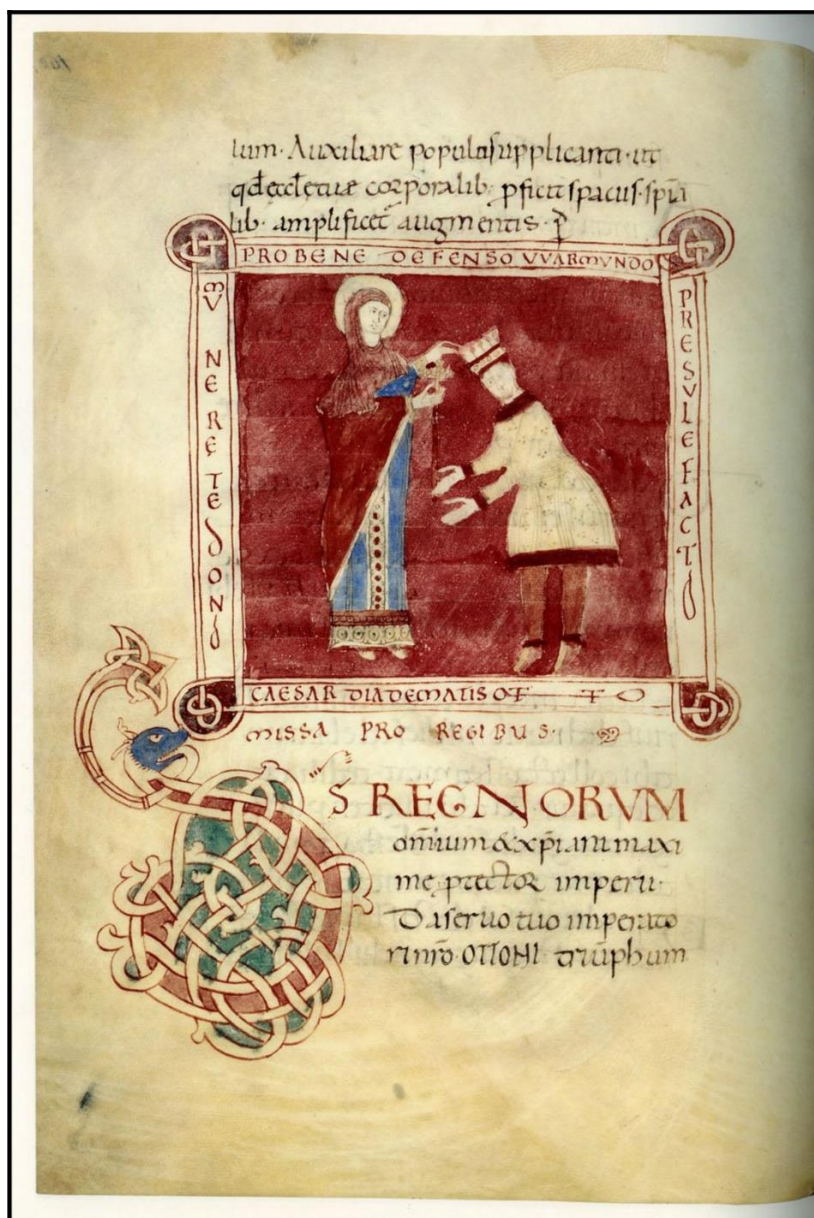 lum· Auxiliare populo supplicanti· ut
qđ eccłe tuæ corporalib; ꝓficit spacus· spīa
lib· amplificet̄ augmentis· P̄
PRO BENE DEFENSO VVARMVNDO
PRESVLE FACTO
MVNERE TE DONO
CAESAR DIADEMATIS OTTO
MISSA PRO REGIBUS·
DS REGNORVM
omīum & xp̄iani maxi
me ꝓtector imperii·
Da seruo tuo imperato
ri nrō· OTTONI triūphum